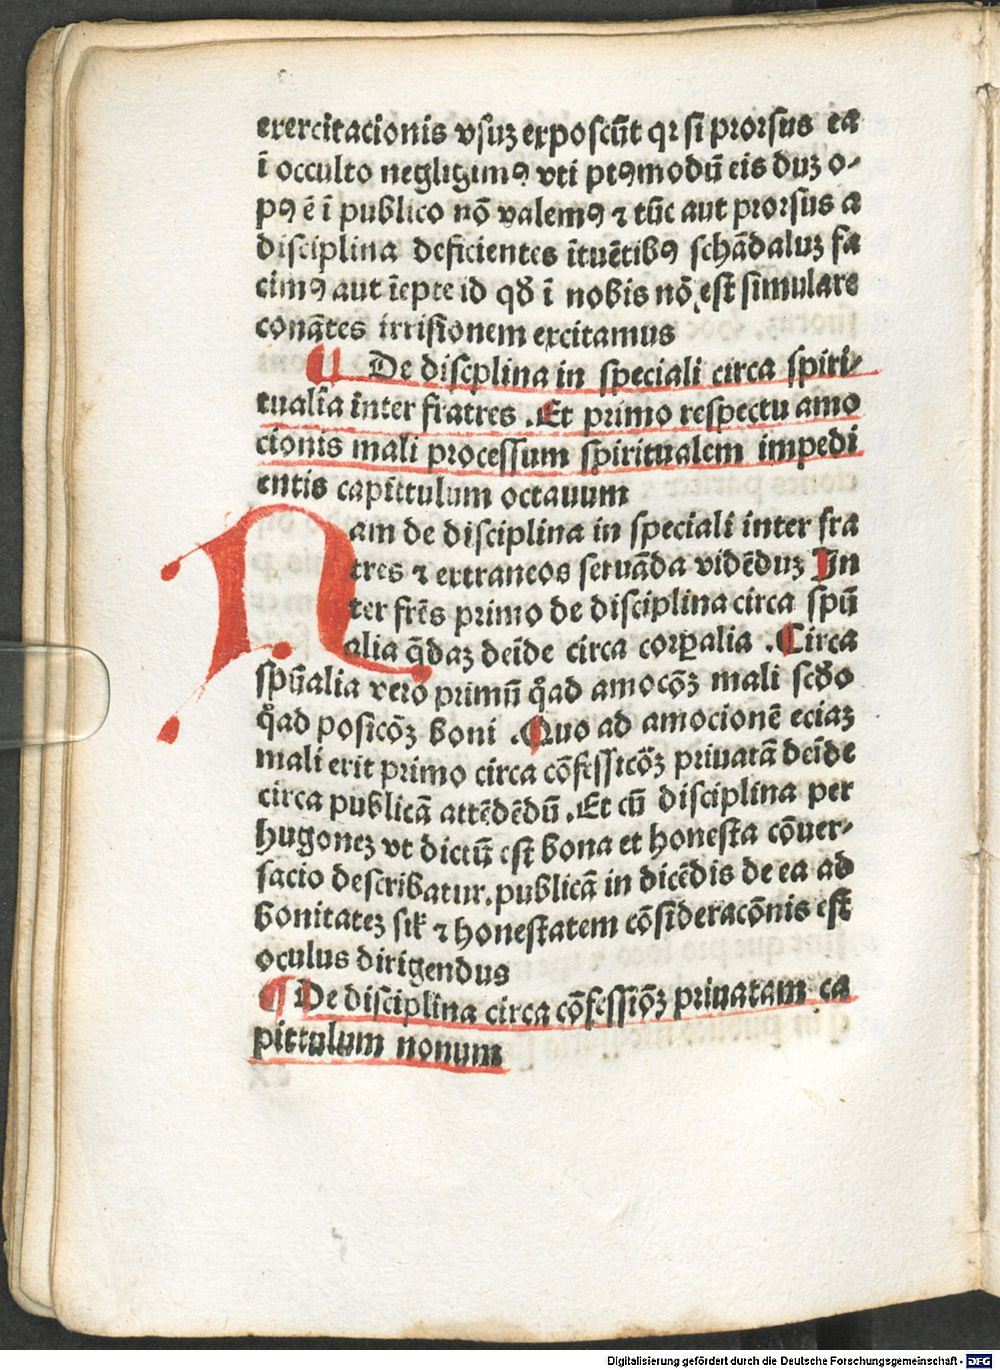 exercitacionis vsuꝫ exposcūt qꝛ si prorsus ea
ī occulto negligimꝰ vti ptꝰmodū eis duꝫ o-
pꝰ ē ī publico nō valemꝰ ⁊ tūc aut prorsus a
disciplina deficientes ītuētibꝰ schādaluꝫ fa
cimꝰ aut īepte id qd̄ ī nobis nō est simulare
conātes irrisionem excitamus
¶ De discplina in speciali circa spiri-
tualia īnter fratres . Et primo respectu amo
cionis mali processum spiritualem impedi
entis capittulum octauum
Nam de disciplina in speciali inter fra
tres ⁊ extraneos seruāda vidēduꝫ In
ter frēs primo de disciplina circa spū
alia q̄daꝫ deīde circa corꝑalia . Circa
spūalia vero primū qͦad amocōꝫ mali scd̄o
qͦad posicōꝫ boni . Quo ad amocionē eciaꝫ
mali erit primo circa cōfessiōꝫ priuatā deīde
circa publicā attēdēdū . Et cū disciplina per
hugoneꝫ vt dictū est bona et honesta cōuer-
sacio describatur . publicā in dicēdis de ea ad
bonitateꝫ sil̄ ⁊ honestatem cōsideracōnis est
oculus dirigendus
¶ De disciplina circa cōfessiōꝫ priuatam ca
pittulum nonum
Digitalisierung gefördert durch die Deutsche Forschungsgemeinschaft - DFG